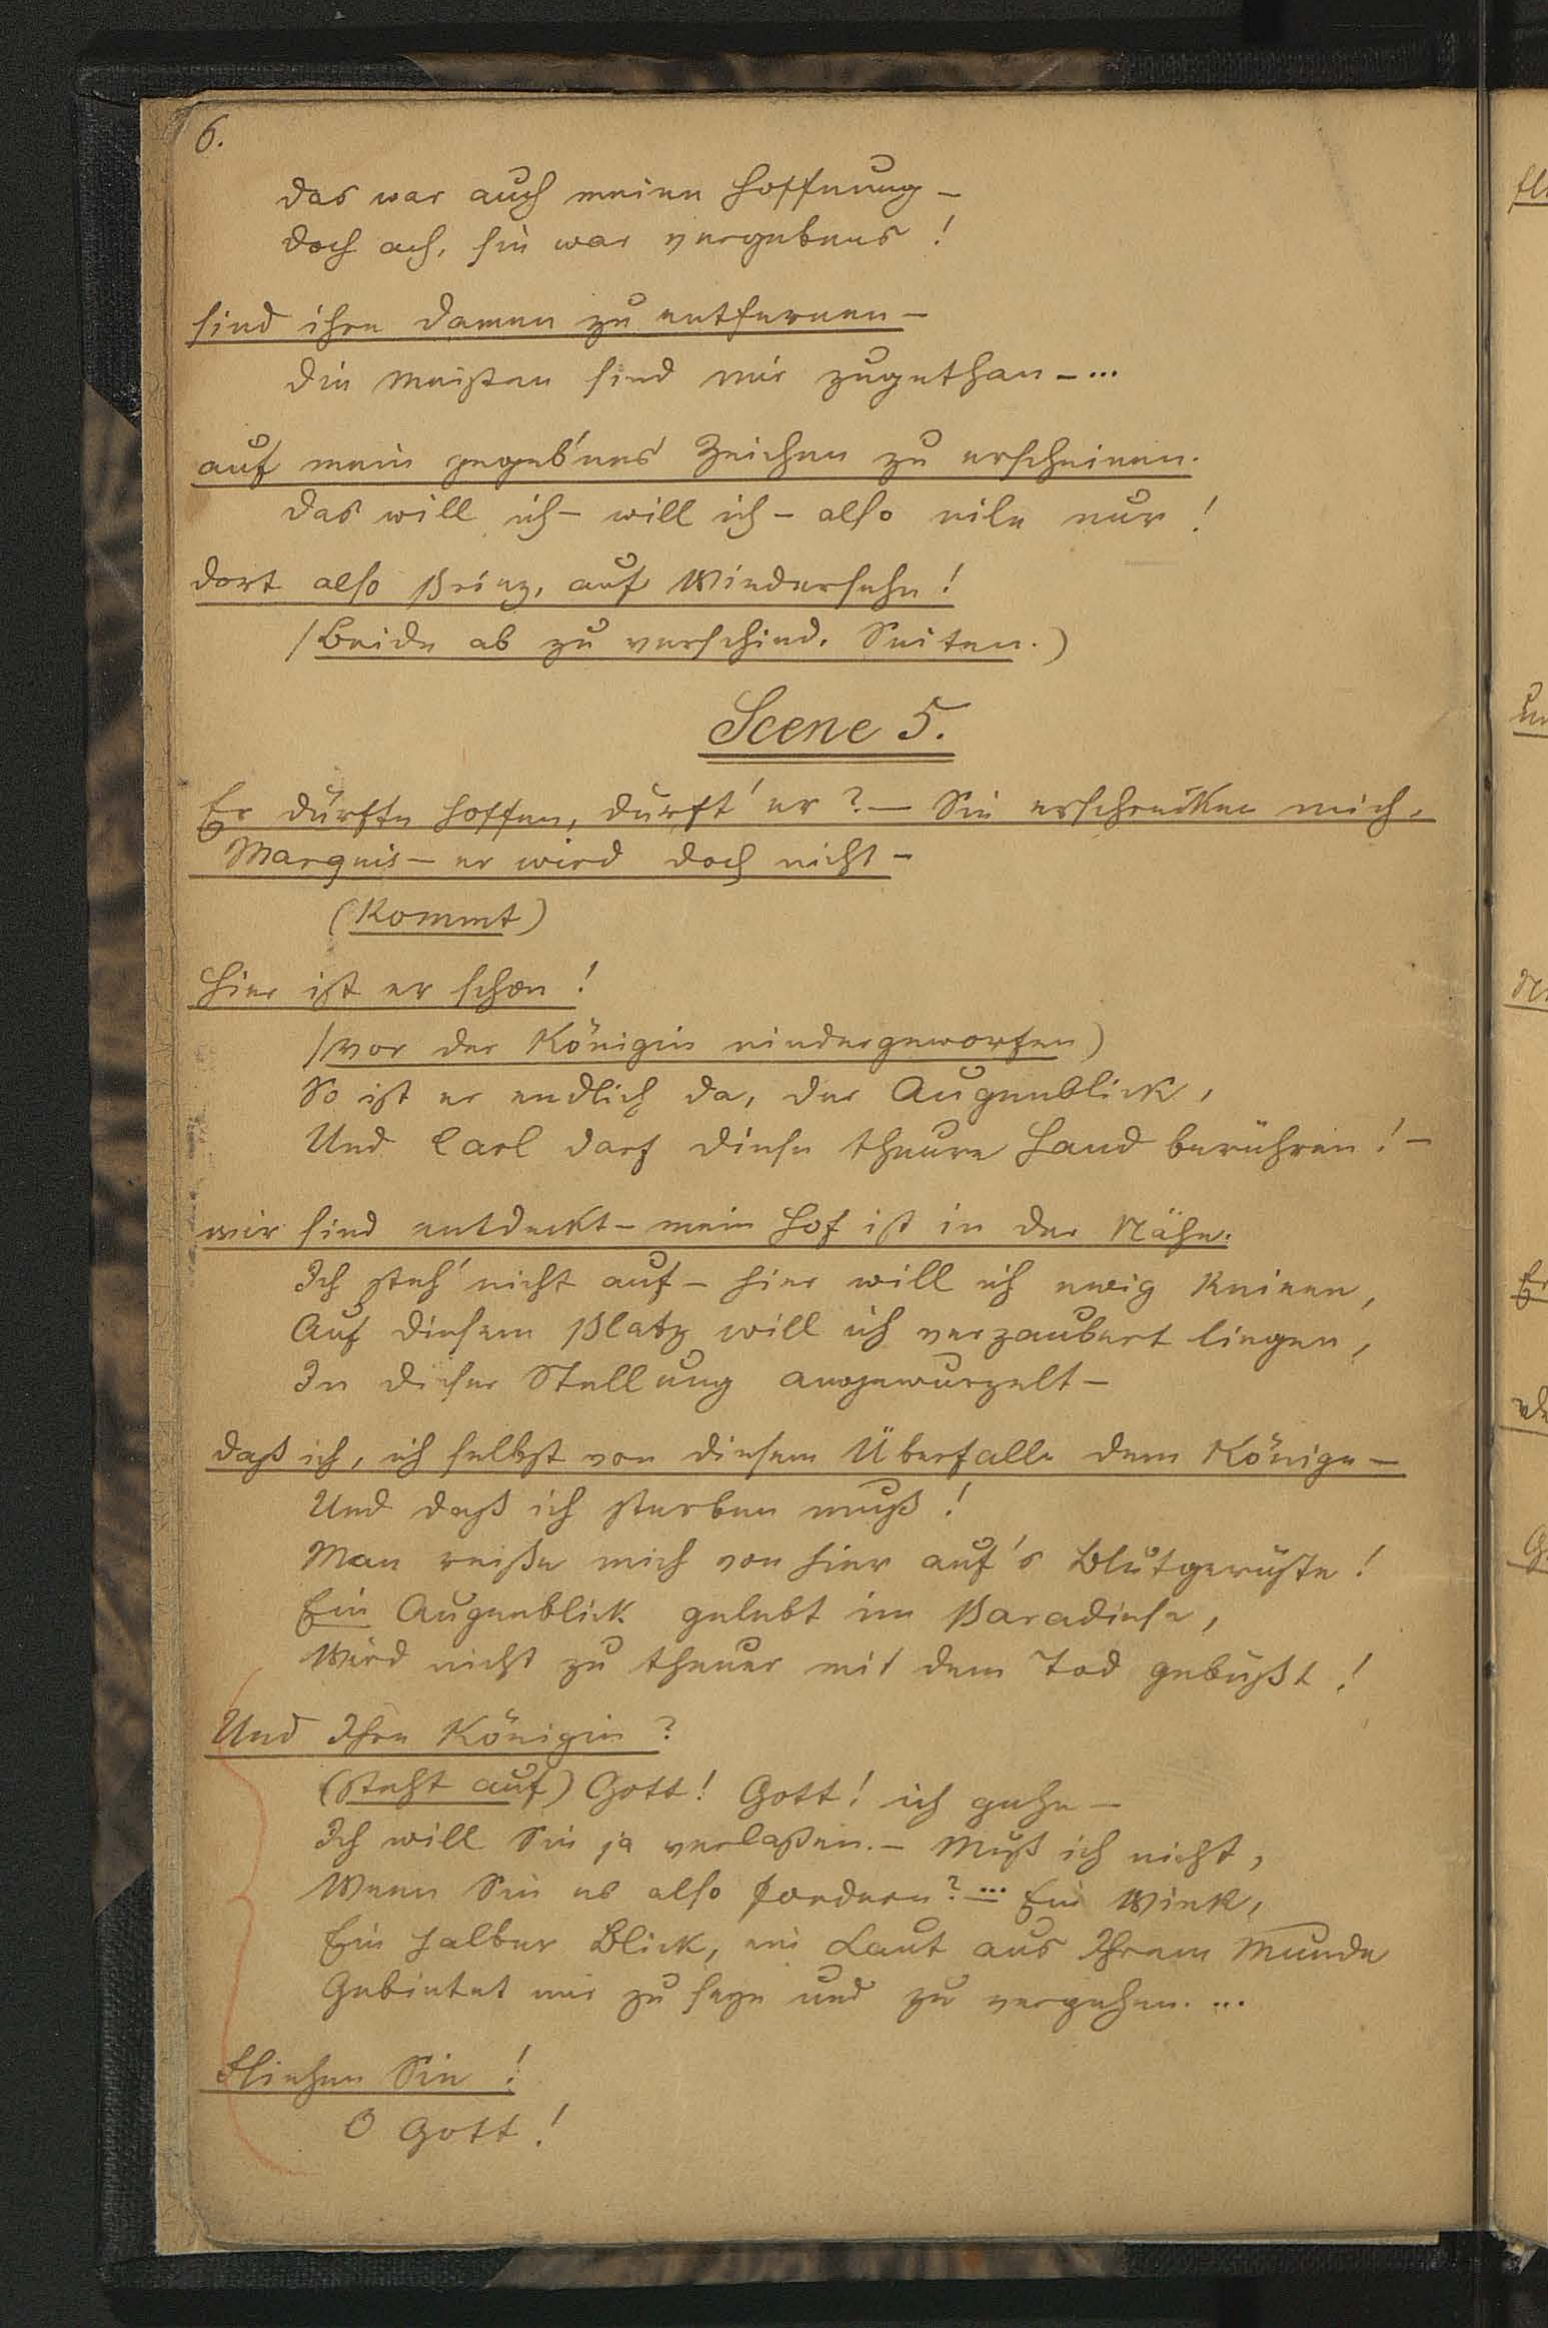 6.
das war auch meine Hoffnung –
doch ach, sie war vergebens!
sind ihre Damen zu entfernen –
die meisten sind mir zugethan – ...
auf mein gegeb'nes Zeichen zu erscheinen.
das will ich – will ich – also eile nur!
dort also Prinz, auf Wiedersehn!
(Beide ab zu verschied. Seiten.)
Scene 5.
Er dürfte hoffen, dürft' er? – Sie erschrecken mich,
Marquis – er wird doch nicht –
(Kommt)
Hier ist er schon!
(vor der Königin niedergeworfen)
So ist er endlich da, der Augenblick,
Und Carl darf diese theure Hand berühren! –
wir sind entdeckt – mein Hof ist in der Nähe.
Ich steh' nicht auf – hier will ich ewig knieen,
Auf diesem Platz will ich verzaubert liegen,
In dieser Stellung angewurzelt –
daß ich, ich selbst von diesem Überfalle dem Könige –
Und daß ich sterben muß!
Man reiße mich von hier auf's Blutgerüste!
Ein Augenblick gelebt im Paradiese,
Wird nicht zu theuer mit dem Tod gebüßt!
Und Ihre Königin?
(steht auf) Gott! Gott! ich gehe –
Ich will Sie ja verlaßen. – Muß ich nicht,
Wenn Sie es also fordern? – ... Ein Wink,
Ein halber Blick, ein Laut aus Ihrem Munde
Gebietet mir zu seyn und zu vergehen. ...
Fliehen Sie!
O Gott!